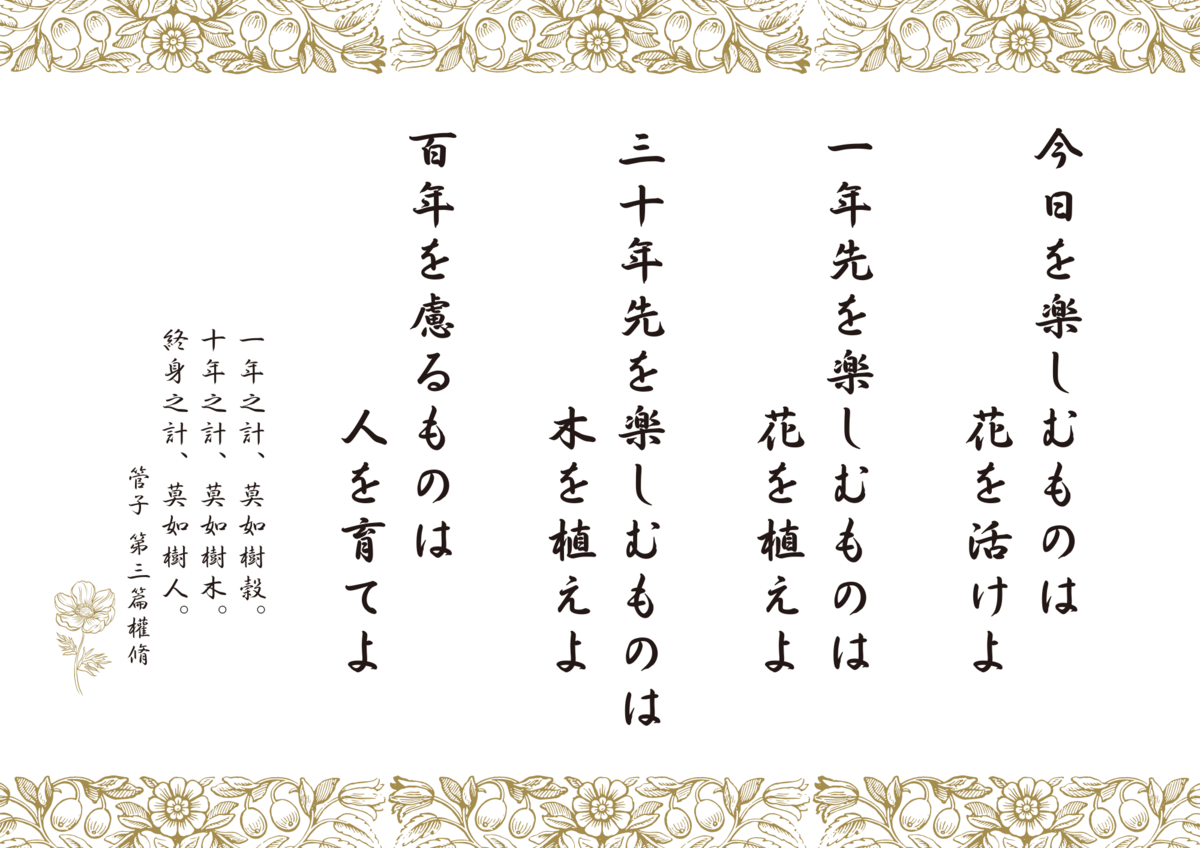 今日を楽しむものは
花を活けよ
一年先を楽しむものは
花を植えよ
三十年先を楽しむものは
木を植えよ
百年を慮るものは
人を育てよ
一年之計、莫如樹穀。
十年之計、莫如樹木。
終身之計、莫如樹人。
管子 第三篇權脩